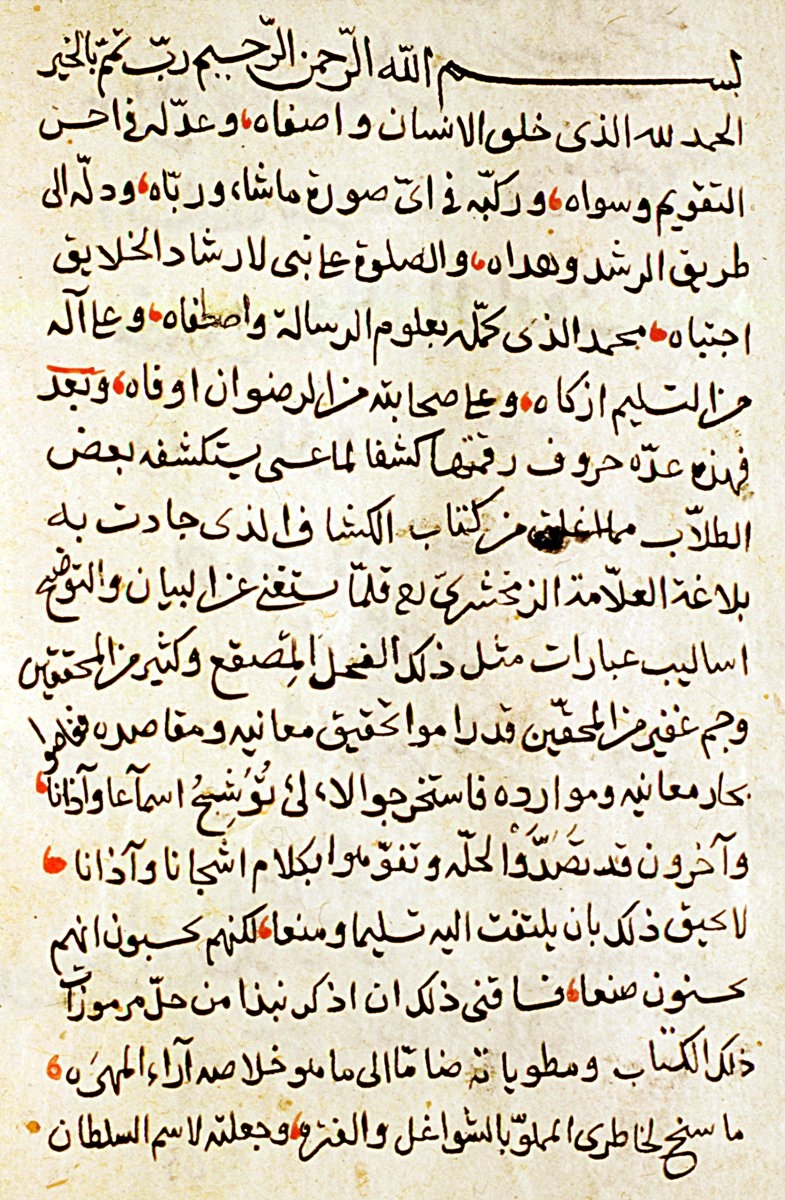 بسم الله الرحمن الرحيم رب تمم بالخير
الحمد لله الذى خلق الانسان واصفاه وعدله فى احسن
التقويم وسواه وركبه فى اىّ صورة ما شاء ورباه ودلّه الى
طريق الرشد وهداه والصلوة على نبى لارشاد الخلايق
اجتباه محمد الذى كمّله بعلوم الرسالة واصطفاه وعلى آله
من التسليم ازكاه وعلى صحابته من الرضوان اوفاه وبعد
فهذه عدّه حروف رقمتها كشفا لما عسى يستكشفه بعض
الطلّاب مما انغلق من كتاب الكشاف الذى جادت به
بلاغة العلّامة الزمخشرىّ قلّما يستغنى عن البيان والتوضيح
اساليب عبارات مثل ذلك الفحل المِصقع وكثير من المحققين
وجم غفير من المحقّين قد راموا تحقيق معانيه ومقاصده فخاضوا
بحار معانيه وموارده فاستخرجوا لآلئ تُوَشِّحُ اسماعا وآذانا
وآخرون قد تصَدَّوْا لحلّه وتفوّهوا بكلام اشجانا وآذانا
لا يحيق ذلك بان يلتفت اليه تسليما ومنعا لكنهم يحسبون انهم
يحسنون صنعا فساقنى ذلك ان اذكر نبذا من حلّ مرموزات
ذلك الكتاب ومطوياته ضامّا الى ما هو خلاصه آراء المهَره
ما سنح لخاطرى المملوّ بالشواغل والفتره وجعلته لاسم السلطان